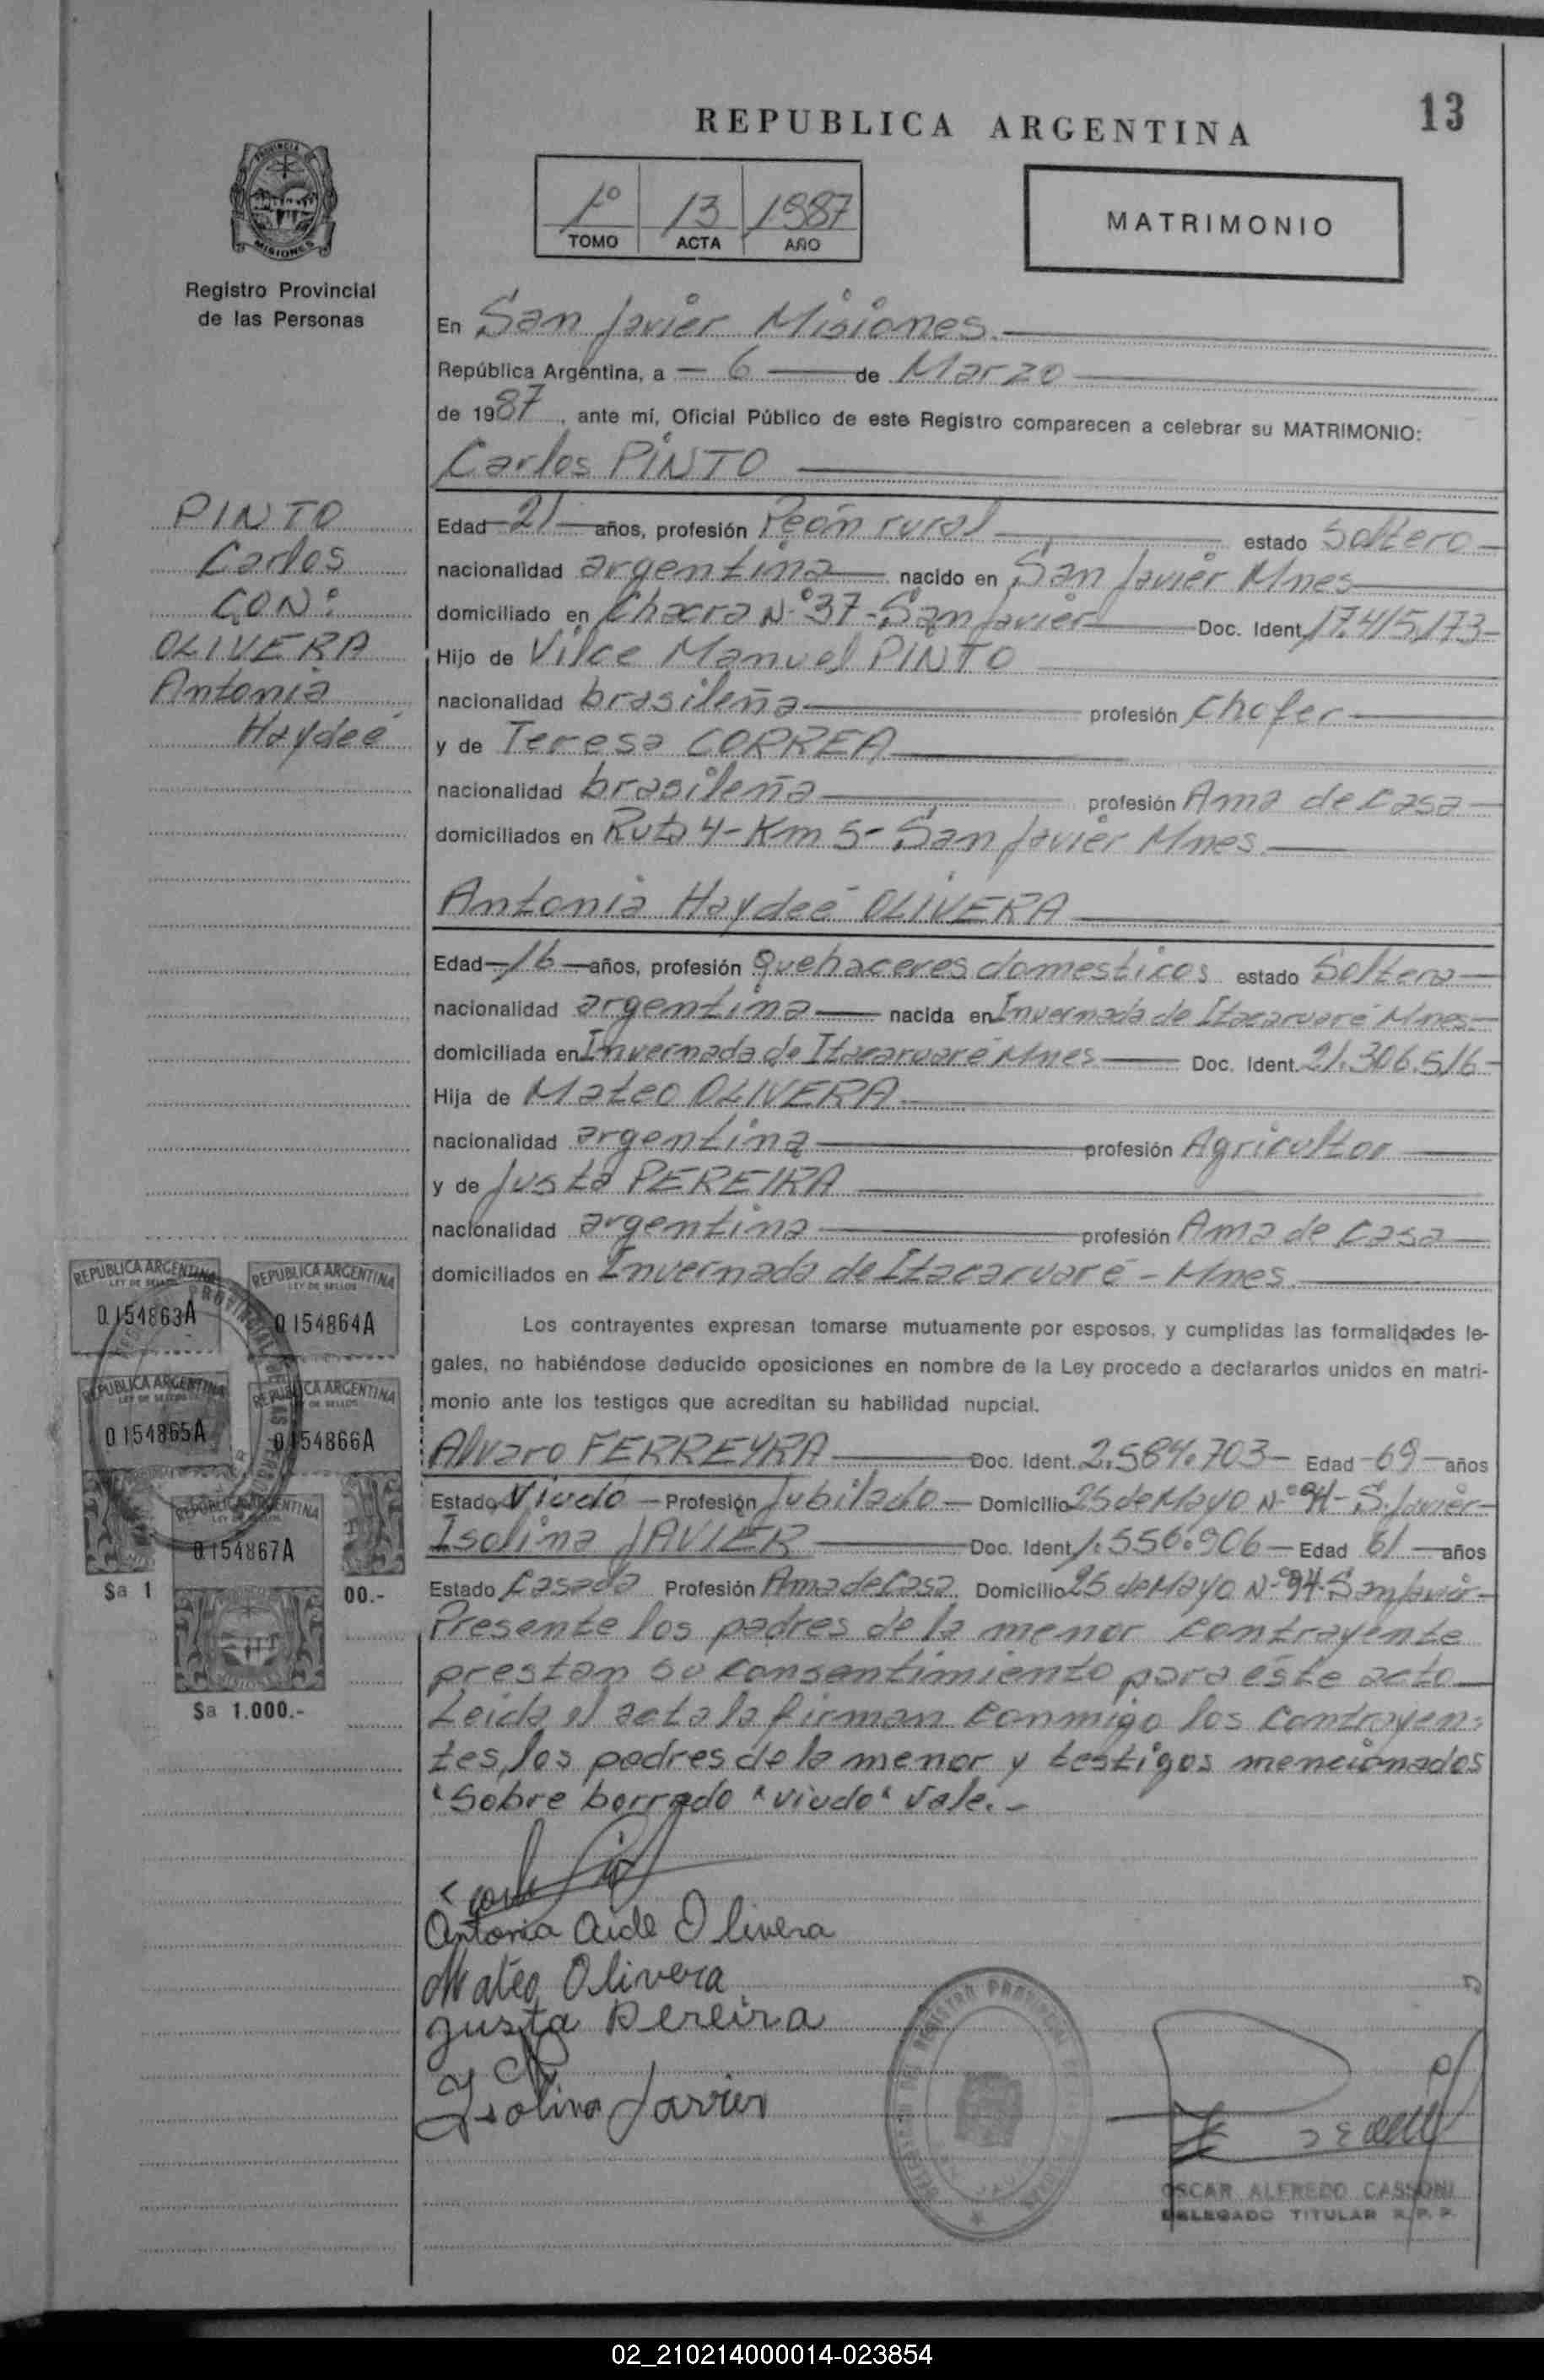 13
REPUBLICA ARGENTINA
1º 13 1987
TOMO ACTA AÑO
MATRIMONIO
PROVINCIA DE
MISIONES
Registro Provincial
de las Personas
En San Javier Misiones.
República Argentina, a - 6 - de Marzo
de 1987, ante mí, Oficial Público de este Registro comparecen a celebrar su MATRIMONIO:
Carlos PINTO
PINTO
Carlos
CON:
OLIVERA
Antonia
Haydeé
Edad 21 años, profesión Peón rural estado Soltero
nacionalidad argentina nacido en San Javier Mnes
domiciliado en Chacra Nº 37-San Javier Doc. Ident. 17.415.173-
Hijo de Vilce Manuel PINTO
nacionalidad brasileña profesión Chofer
y de Teresa CORREA
nacionalidad brasileña profesión Ama de casa
domiciliados en Ruta 4-Km 5-San Javier Mnes.
Antonia Haydeé OLIVERA
Edad 16 años, profesión quehaceres domesticos estado Soltera
nacionalidad argentina nacida en Invernada de Itacaruaré Mnes.
domiciliada en Invernada de Itacaruaré Mnes Doc. Ident. 21.306.516-
Hija de Mateo OLIVERA
nacionalidad argentina profesión Agricultor
y de Justa PEREIRA
nacionalidad argentina profesión Ama de casa
domiciliados en Invernada de Itacaruaré - Mnes.
Los contrayentes expresan tomarse mutuamente por esposos, y cumplidas las formalidades le-
gales, no habiéndose deducido oposiciones en nombre de la Ley procedo a declararlos unidos en matri-
monio ante los testigos que acreditan su habilidad nupcial.
Alvaro FERREYRA Doc. Ident. 2.584.703- Edad 69 años
Estado Viudo - Profesión Jubilado - Domicilio 25 de Mayo Nº 94- S. Javier-
Isolina JAVIER Doc. Ident. 1.556.906- Edad 61 años
Estado Casada Profesión Ama de Casa Domicilio 25 de Mayo Nº 94-San Javier-
Presente los padres de la menor contrayente
prestan su consentimiento para éste acto
Leida el acta la firman conmigo los contrayen-
tes, los padres de la menor y testigos mencionados
"Sobre borrado "viudo" Vale.-
REPUBLICA ARGENTINA
LEY DE SELLOS
0154863A
REPUBLICA ARGENTINA
LEY DE SELLOS
0154864A
REPUBLICA ARGENTINA
LEY DE SELLOS
0154865A
REPUBLICA ARGENTINA
LEY DE SELLOS
0154866A
REPUBLICA ARGENTINA
LEY DE SELLOS
0154867A
$a 1
00.-
$a 1.000.-
Antonia Aide Olivera
Mateo Olivera
Justa Pereira
Isolina Javier
OSCAR ALFREDO CASSONI
DELEGADO TITULAR R.P.P.
02_210214000014-023854